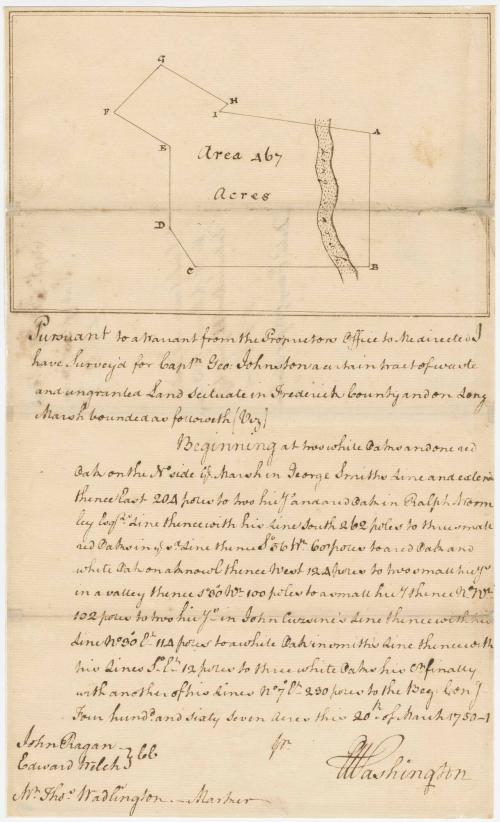 G
H
F
I
A
E
Area 467
Acres
D
C
B
Pursuant to a warrant from the Proprietors Office to Me directed I
have Survey'd for Captn. Geo: Johnston a certain tract of waste
and ungranted Land scituate in Frederick County and on Long
Marsh bounded as followeth (Viz)
Beginning at two white Oaks and one red
Oak on the No. side ye Marsh in George Smiths Line and extends
thence East 204 poles to two hic'ys and a red Oak in Ralph Worm
ley Esqrs. Line thence with his Line South 262 poles to three small
red Oaks in ye sd. Line thence So. 56 Wt. 60 poles to a red Oak and
white Oak on a knowl thence West 124 poles to two small hic'ys
in a valley thence So. 30 Wt. 100 poles to a small hic'y thence No. Wt.
102 poles to two hic'ys in John Line thence with his
Line No. 30 Et. 114 poles to a white Oak in smiths Line thence with
his Lines So. Et. 12 poles to three white Oaks his Cr. finally
with another of his Lines No. 7 Et. 230 poles to the Beg: Con'g
Four hundd. and sixty seven Acres this 20th. of March 1750-1
John Ragan
Edward Welch } CC
pr.
GWashington
Mr. Thos. Wadlington - Marker